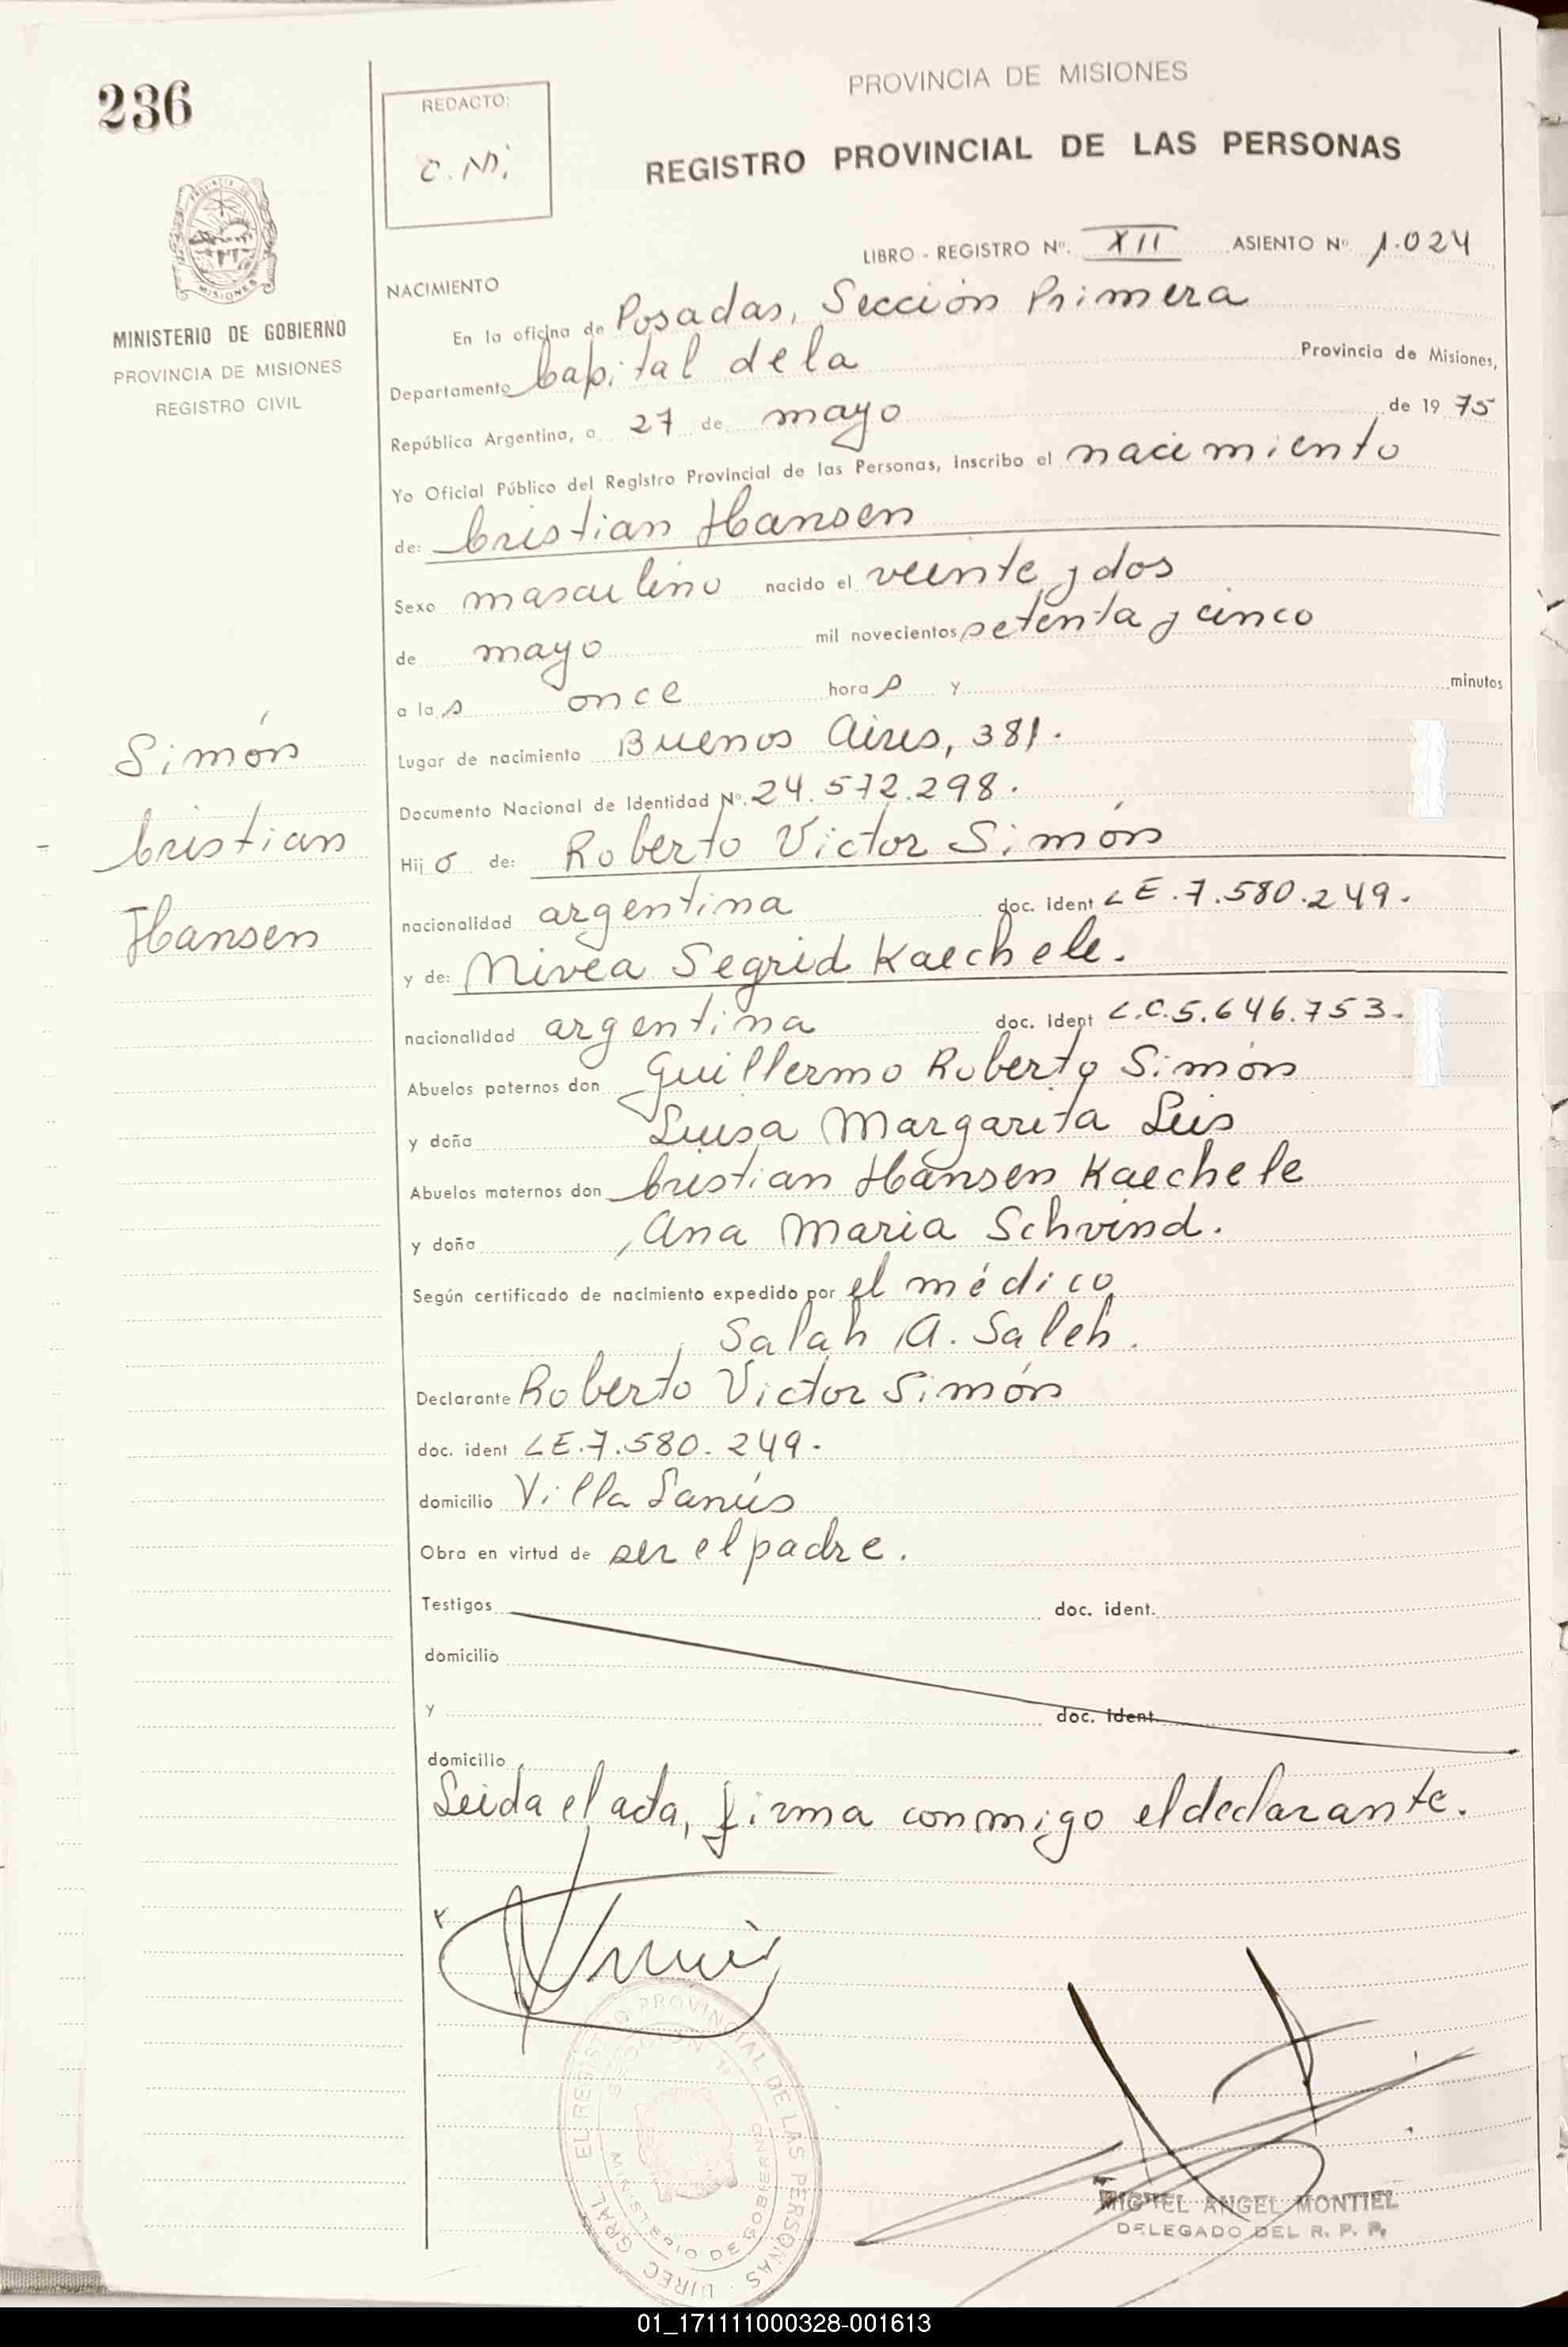 236
REDACTO:
C. M.
PROVINCIA DE MISIONES
REGISTRO PROVINCIAL DE LAS PERSONAS
MINISTERIO DE GOBIERNO
PROVINCIA DE MISIONES
REGISTRO CIVIL
LIBRO - REGISTRO Nº. XII ASIENTO Nº 1.024
NACIMIENTO
En la oficina de Posadas, Sección Primera
Departamento Capital de la Provincia de Misiones,
República Argentina, a 27 de mayo de 1975
Yo Oficial Público del Registro Provincial de las Personas, inscribo el nacimiento
de: Cristian Hansen
Sexo masculino nacido el veinte y dos
de mayo mil novecientos setenta y cinco
a las once horas y minutos
Lugar de nacimiento Buenos Aires, 381.
Documento Nacional de Identidad Nº. 24.572.298.
Simón
Cristian
Hansen
Hijo de: Roberto Victor Simón
nacionalidad argentina doc. ident LE.7.580.249.
y de: Nivea Segrid Kaechele.
nacionalidad argentina doc. ident L.C.5.646.753.
Abuelos paternos don Guillermo Roberto Simón
y doña Luisa Margarita Leis
Abuelos maternos don Cristian Hansen Kaechele
y doña Ana Maria Schvind.
Según certificado de nacimiento expedido por el médico
Salah A. Saleh.
Declarante Roberto Victor Simón
doc. ident LE.7.580.249.
domicilio Villa Lanús
Obra en virtud de ser el padre.
Testigos doc. ident.
domicilio
y doc. ident.
domicilio
Leida el acta, firma conmigo el declarante.
DIREC. GRAL. EL REGISTRO PROVINCIAL DE LAS PERSONAS
SECCION 1ª
MINISTERIO DE GOBIERNO
MIGUEL ANGEL MONTIEL
DELEGADO DEL R. P. P.
01_171111000328-001613